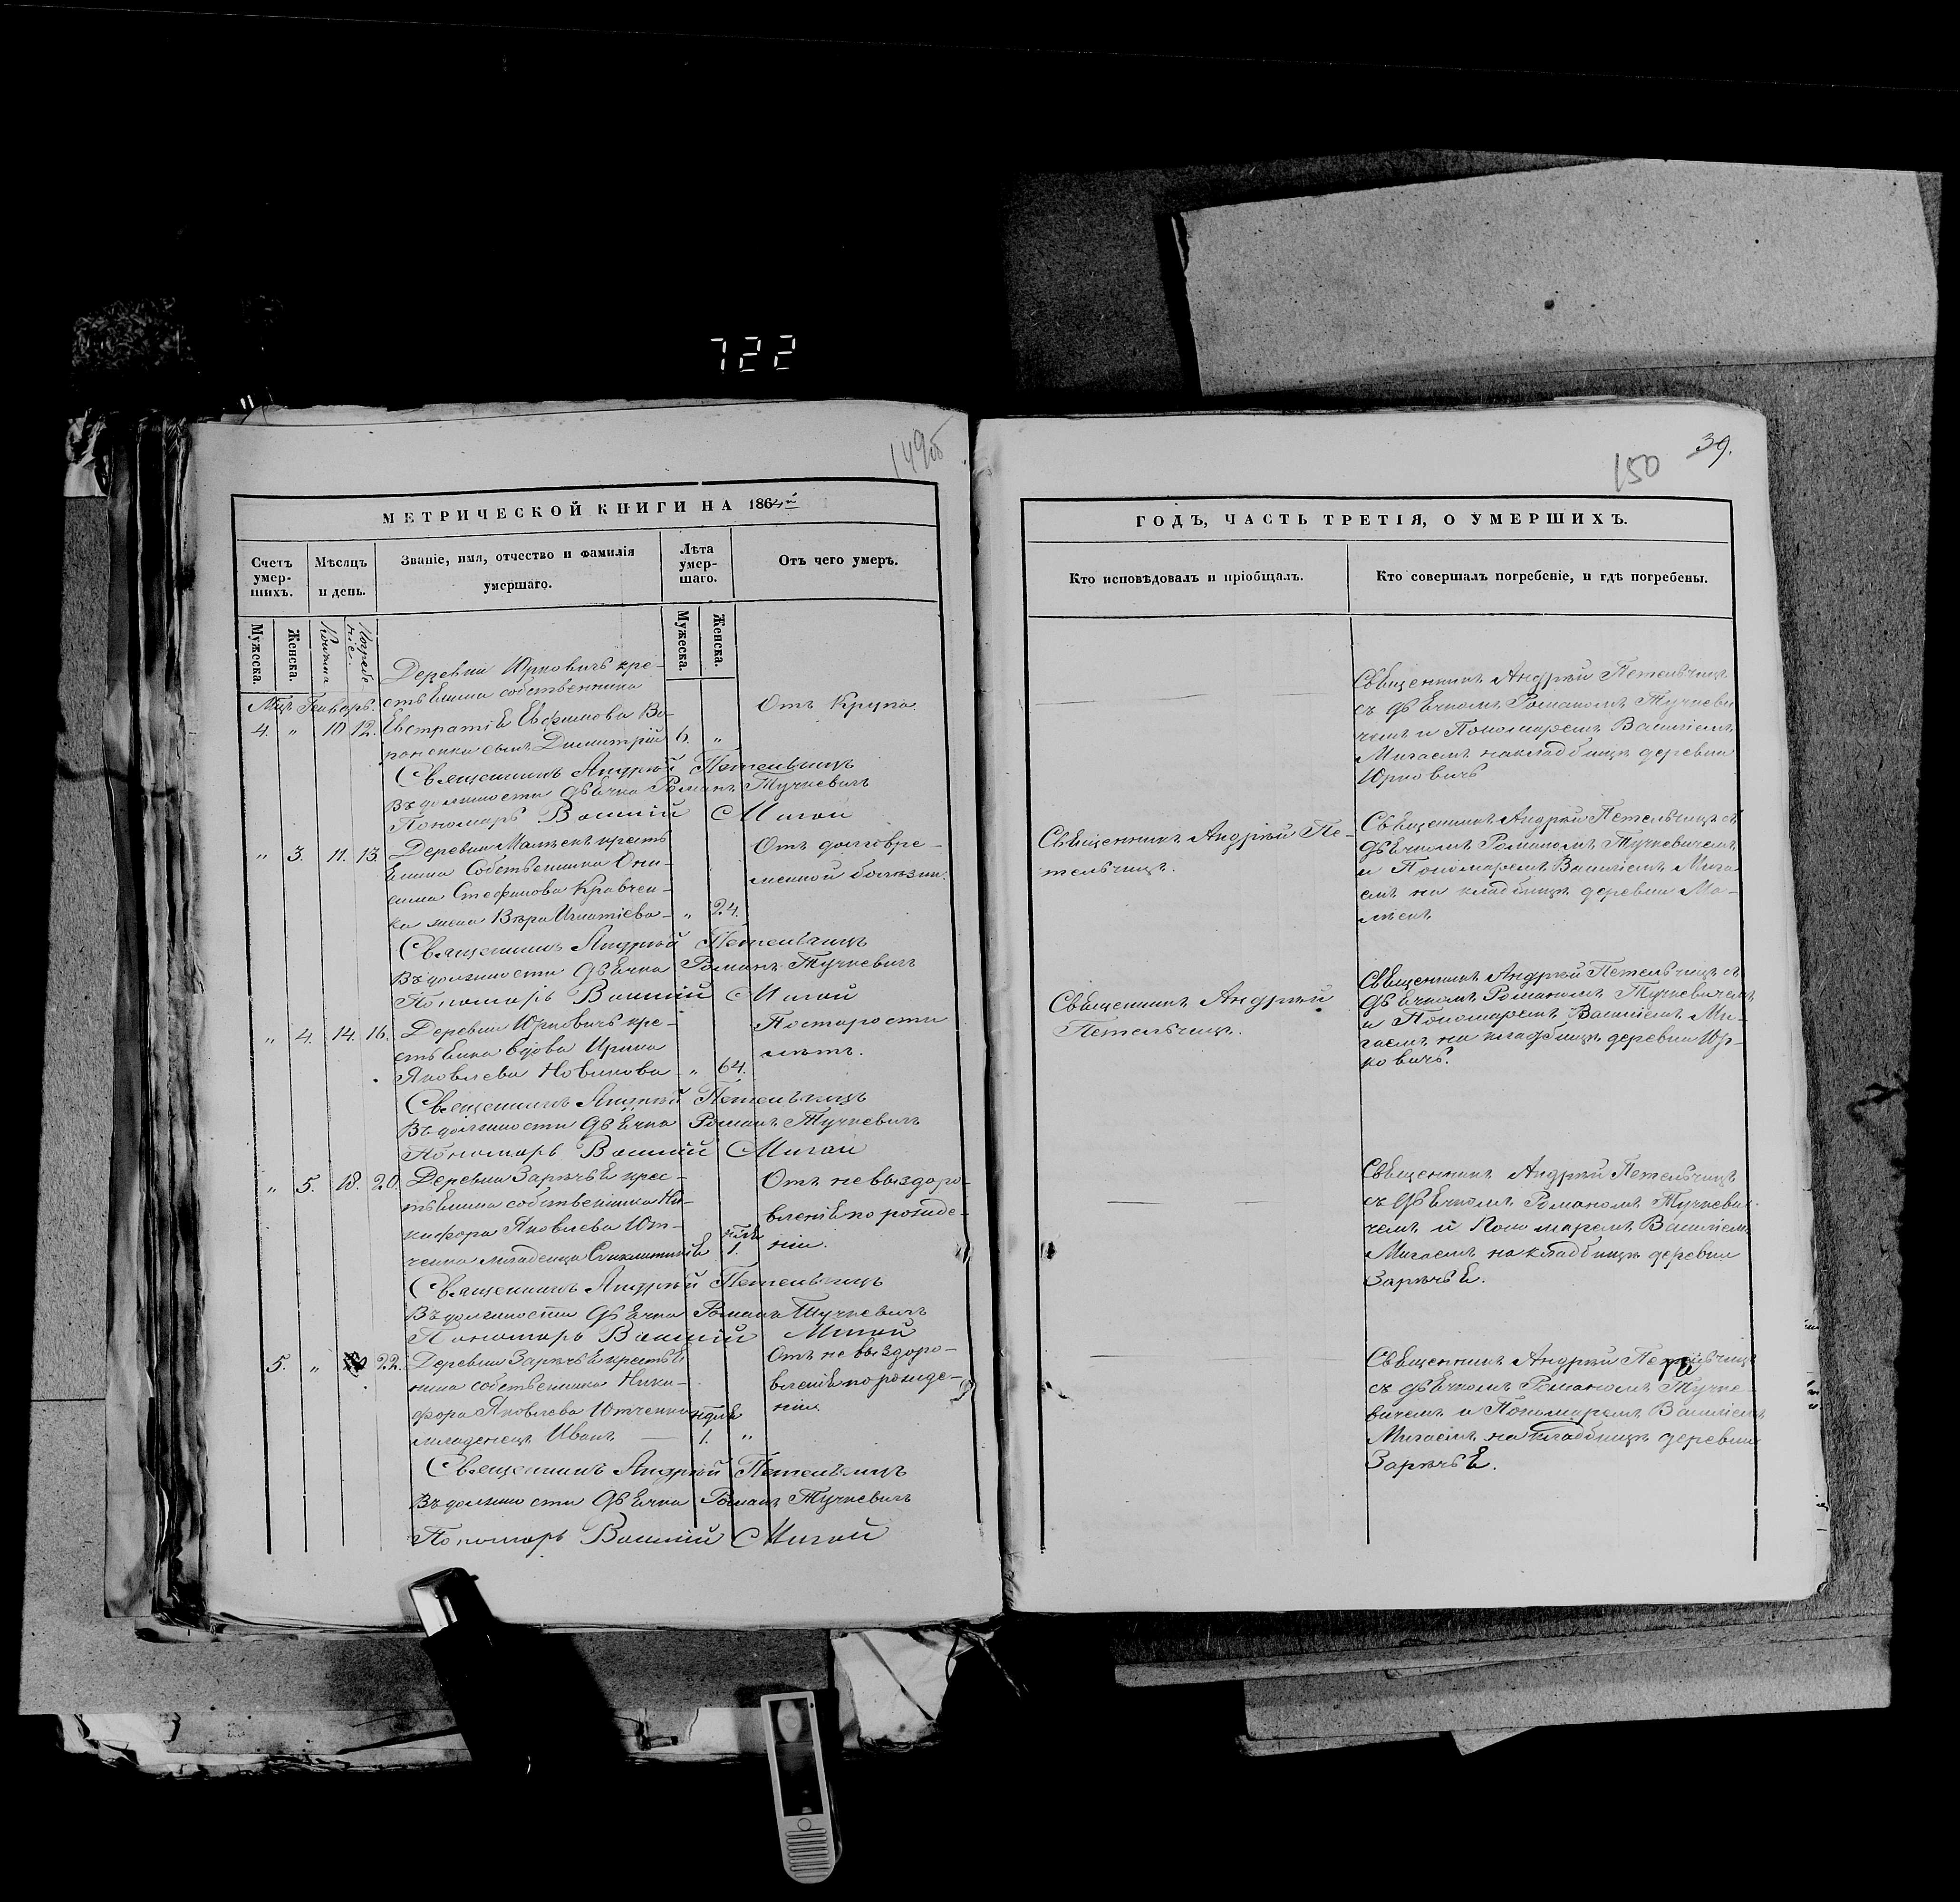 722
149об
МЕТРИЧЕСКОЙ КНИГИ НА 1864й
Счетъ умер-шихъ.
Мѣсяцъ и день.
Званіе, имя, отчество и фамилія умершаго.
Лѣта умер-шаго.
Отъ чего умеръ.
Мужеска.
Женска.
Погребе-ніе.
Мужеска.
Женска.
Деревни Юрковичъ кре-
Мцъ Генварь.
стьянина собственника
4. " 10 12. Евстратія Ефимова Во-
роненки сынъ Димитрій 6. "
Отъ Крупа.
Священникъ Андрей Петельчицъ
Въ должности дьячка Романъ Тучкевичъ
Пономарь Василій Мигай
" 3. 11. 13. Деревни Малѣекъ кресть
янина Собственника Они-
сима Стефанова Кравчен-
ка жена Вѣра Игнатіева " 24.
Отъ долговре-
менной болѣзни.
Священникъ Андрей Петельчицъ
Въ должности дьячка Романъ Тучкевичъ
Пономарь Василій Мигай
" 4. 14. 16. Деревни Юрковичъ кре-
стьянка вдова Ирина
Яковлева Новикова " 64.
По старости
лѣтъ.
Священникъ Андрей Петельчицъ
Въ должности дьячка Романъ Тучкевичъ
Пономарь Василій Мигай
" 5. 18. 20. Деревни Зарѣчья крес-
тьянина собственника Ни-
кифора Яковлева Ют-
ченка младенца Синклитикія 1.
Отъ не выздоро-
вленія по рожде-
ніи.
Священникъ Андрей Петельчицъ
Въ должности дьячка Романъ Тучкевичъ
Пономарь Василій Мигай
5. " 22. Деревни Зарѣчья крестья
нина собственника Ники-
фора Яковлева Ютченка
младенецъ Иванъ — 1. "
Отъ не выздоро-
вленія по рожде-
ніи
Священникъ Андрей Петельчицъ
Въ должности дьячка Романъ Тучкевичъ
Пономарь Василій Мигай
150
39.
ГОДЪ, ЧАСТЬ ТРЕТІЯ, О УМЕРШИХЪ.
Кто исповѣдовалъ и пріобщалъ.
Кто совершалъ погребеніе, и гдѣ погребены.
Священникъ Андрей Петельчицъ
съ дьячкомъ Романомъ Тучкеви
чемъ и Пономаремъ Василіемъ
Мигаемъ на кладбищѣ деревни
Юрковичъ
Священникъ Андрей Пе-
тельчицъ.
Священникъ Андрей Петельчицъ съ
дьячкомъ Романомъ Тучкевичемъ
и Пономаремъ Василіемъ Мига
емъ на кладбищѣ деревни Ма-
лѣекъ
Священникъ Андрей
Петельчицъ.
Священникъ Андрей Петельчицъ съ
дьячкомъ Романомъ Тучкевичемъ
и Пономаремъ Василіемъ Ми-
гаемъ на кладбищѣ деревни Юр-
ковичъ.
Священникъ Андрей Петельчицъ
съ дьячкомъ Романомъ Тучкеви-
чемъ и Пономаремъ Василіемъ
Мигаемъ на кладбищѣ деревни
Зарѣчья.
Священникъ Андрей Петельчицъ
съ дьячкомъ Романомъ Тучке-
вичемъ и Пономаремъ Василіемъ
Мигаемъ на кладбищѣ деревни
Зарѣчья.